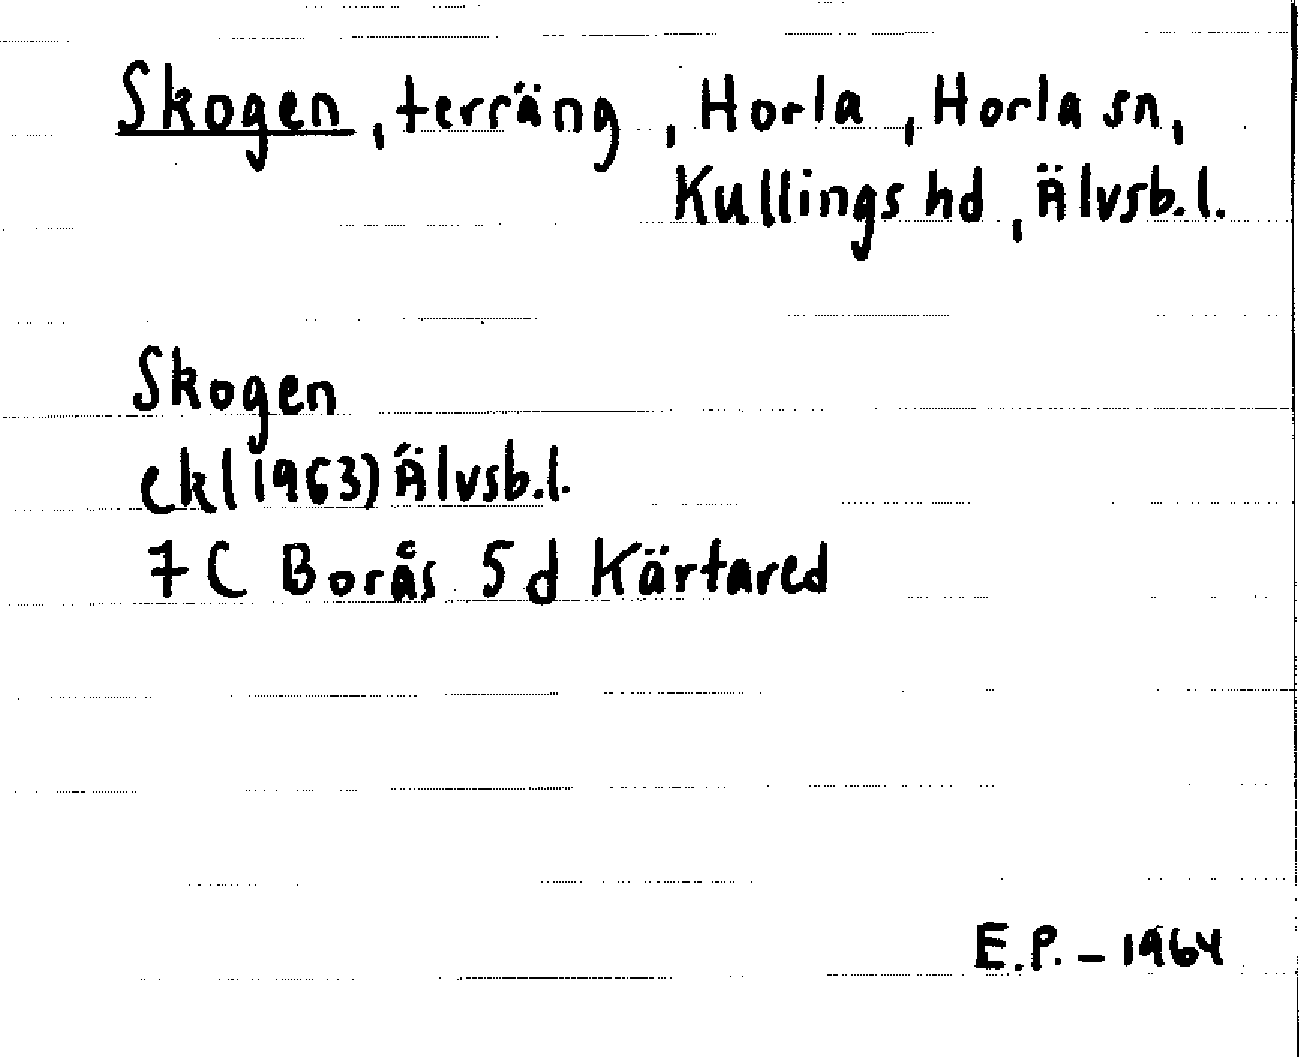 Skogen, terräng, Horla, Horla sn,
Kullings hd, Älvsb.l.
Skogen
ekl(1963) Älvsb.l.
7 C Borås 5 d Kärtared
E.P. - 1964